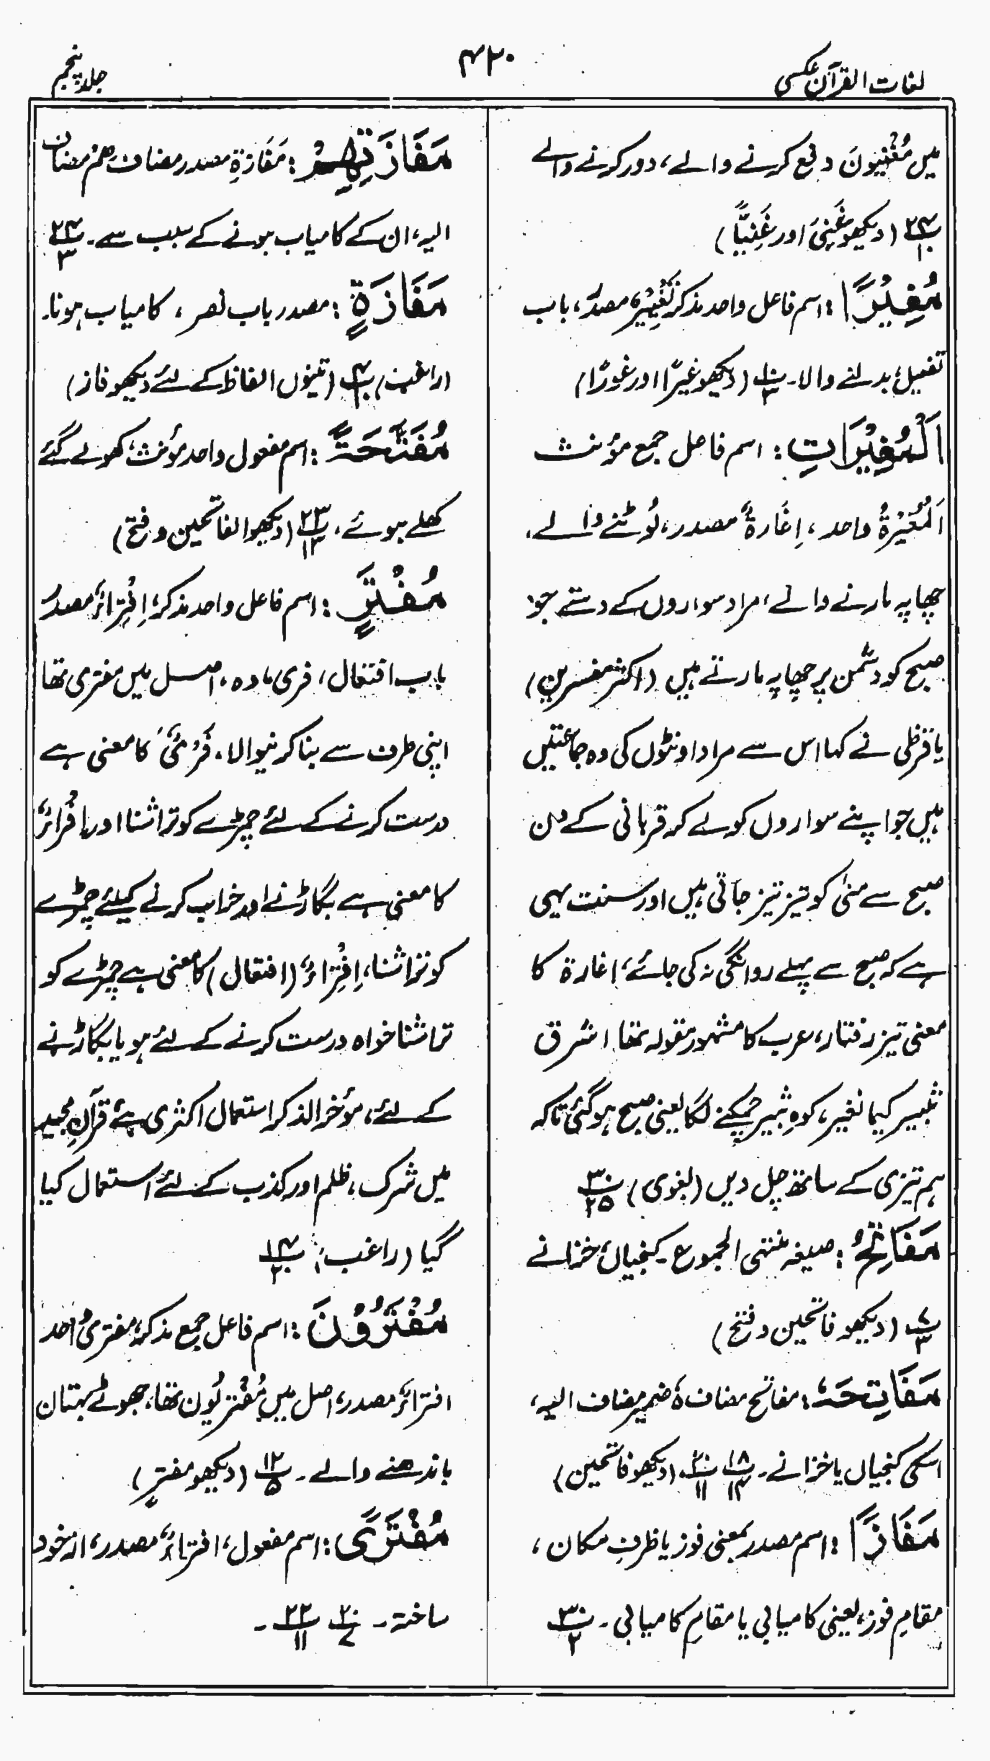 لغات القرآن عکسی
۴۲۰
جلد پنجم
میں مُغْنِیُونَ دفع کرنے والے، دور کرنے والے
۲۴/۱۰ (دیکھو غَنِیٌّ اور غَنِیًّا)
مُغَیِّرًا: اسم فاعل واحد مذکر تَغْیِیْرٌ مصدر، باب
تفعیل، بدلنے والا۔ ۱۰/۳ (دیکھو غیرًا اور غورًا)
اَلْمُغِیْرَاتِ: اسم فاعل جمع مؤنث
اَلْمُغِیْرَۃُ واحد، اِغَارَۃٌ مصدر، لُوٹنے والے،
چھاپہ مارنے والے، مراد سواروں کے دستے جو
صبح کو دشمن پر چھاپہ مارتے ہیں (اکثر مفسرین)
یا قرظی نے کہا اس سے مراد اونٹوں کی وہ جماعتیں
ہیں جو اپنے سواروں کو لے کر قربانی کے دن
صبح سے منیٰ کو تیز تیز جاتی ہیں اور سنت یہی
ہے کہ صبح سے پہلے روانگی نہ کی جائے، اغارۃ کا
معنی تیز رفتار، عرب کا مشہور مقولہ تھا اشرق
ثبیر کیما نغیر، کوہِ ثبیر چمکنے لگا یعنی صبح ہو گئی تاکہ
ہم تیزی کے ساتھ چل دیں (بغوی) ۳۰/۲۵
مَفَاتِحُ: صیغہ منتہی الجموع۔ کنجیاں، خزانے
۷/۱۳ (دیکھو فاتحین و فتح)
مَفَاتِحَہٗ: مفاتح مضاف ہٗ ضمیر مضاف الیہ،
اسکی کنجیاں یا خزانے۔ ۱۸/۱۴، ۲۰/۱۱ (دیکھو فاتحین)
مَفَازًا: اسم مصدر بمعنی فوز یا ظرفِ مکان،
مقامِ فوز، یعنی کامیابی یا مقامِ کامیابی۔ ۳۰/۲
مَفَازَتِهِمْ: مَفَازَۃِ مصدر مضاف، هِمْ مضاف
الیہ، ان کے کامیاب ہونے کے سبب سے۔ ۲۴/۳
مَفَازَةٍ: مصدر باب نصر، کامیاب ہونا۔
(راغب) ۴/۱۰ (تینوں الفاظ کے لئے دیکھو فاز)
مُفَتَّحَةً: اسم مفعول واحد مؤنث، کھولے گئے
کھلے ہوئے، ۲۳/۱۳ (دیکھو الفاتحین و فتح)
مُفْتَرٍ: اسم فاعل واحد مذکر، اِفْتِرَاءٌ مصدر
باب افتعال، فری مادہ، اصل میں مفتری تھا
اپنی طرف سے بنا کر نیوالا، فَرْیٌ کا معنی ہے
درست کرنے کے لئے چمڑے کو تراشنا اور یا فْراءٌ
کا معنی ہے بگاڑنے اور خراب کرنے کیلئے چمڑے
کو تراشنا، اِفْتِرَاءٌ (افتعال) کا معنی ہے چمڑے کو
تراشنا خواہ درست کرنے کے لئے ہو یا بگاڑنے
کے لئے، مؤخر الذکر استعمال اکثری ہے، قرآنِ مجید
میں شرک، ظلم اور کذب کے لئے استعمال کیا
گیا (راغب) ۱۴/۲۰
مُفْتَرُوْنَ: اسم فاعل جمع مذکر، مفتری واحد
افتراءٌ مصدر، اصل میں مُفْتَرِیُون تھا، جھوٹے بہتان
باندھنے والے۔ ۱۲/۵ (دیکھو مفترٍ)
مُفْتَرًى: اسم مفعول، افتراءٌ مصدر، از خود
ساختہ۔ ۲۰/۷ ۲۲/۱۱۔